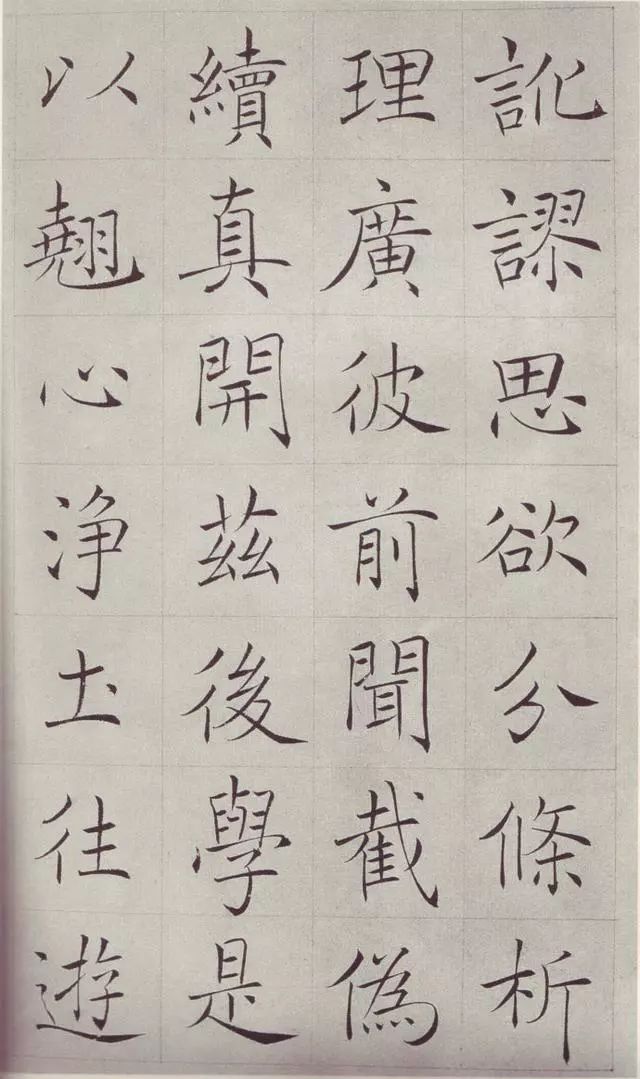 訛謬思欲分條析
理廣彼前聞截偽
續真開茲後學是
以翹心淨土往遊